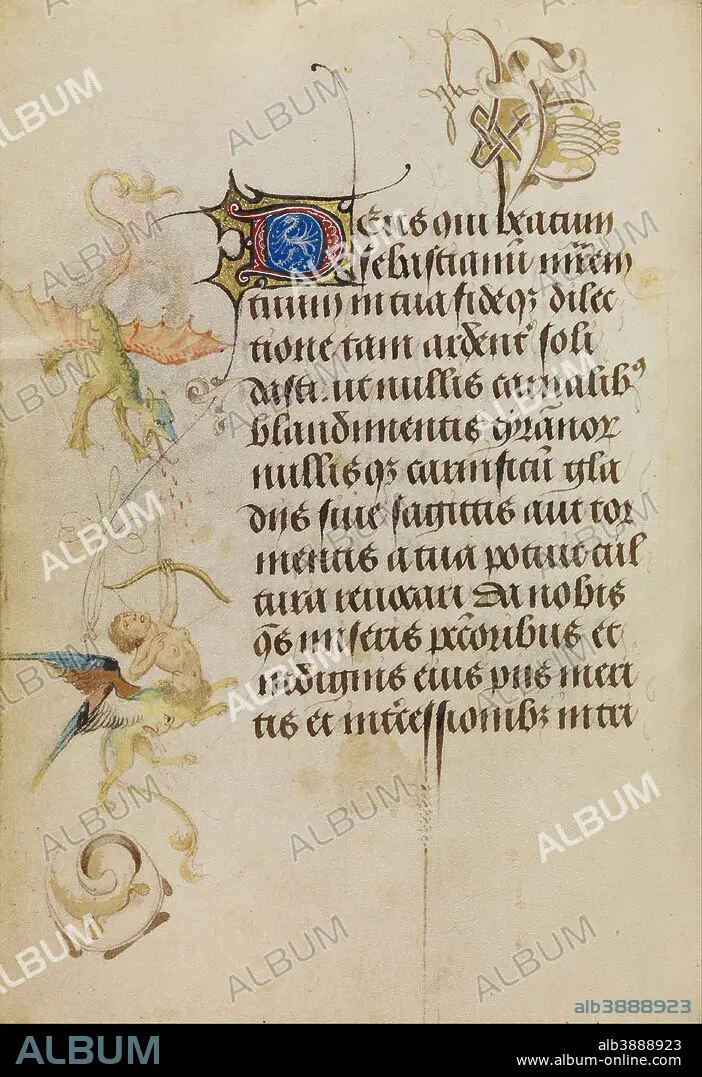 Deus qui beatum
sebastianū mr̄em
tuum in tua fideqȝ dilec
tione tam ardenť soli
dasti. ut nullis carnalibꝰ
blandimentis tyrānor
nullisqȝ carnificū gla
diis siue sagittis aut tor
mentis a tua potuit cul
tura reuocari Da nobis
qs̄ miseris pc̄c̄oribus et
indignis eius piis meri
tis et int̄cessionibȝ in tri
ALBUM
alb3888923
ALBUM
alb3888923
www.album-online.com